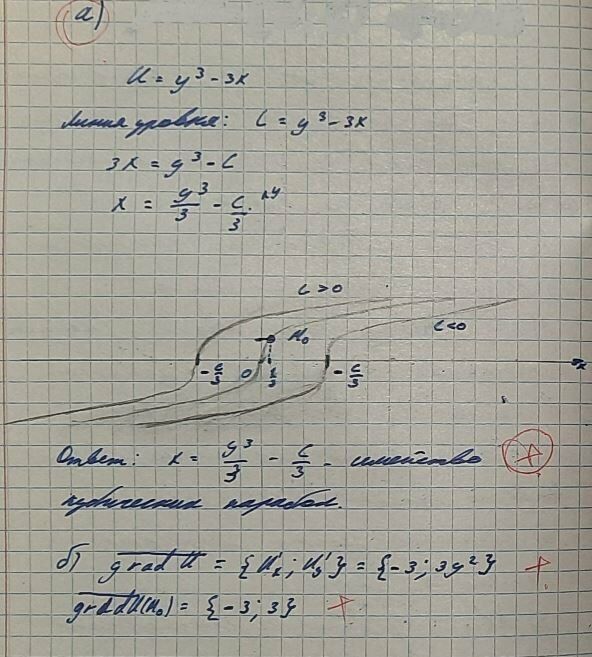 а)
U = y³ - 3x
Линия уровня: C = y³ - 3x
3x = y³ - C
x = y³/3 - C/3.
y
C > 0
C < 0
M₀
-C/3 0 1/3 -C/3 x
Ответ: x = y³/3 - C/3 - семейство
кубических парабол.
б) grad U = {U'x; U'y} = {-3; 3y²} +
grad U(M₀) = {-3; 3} +